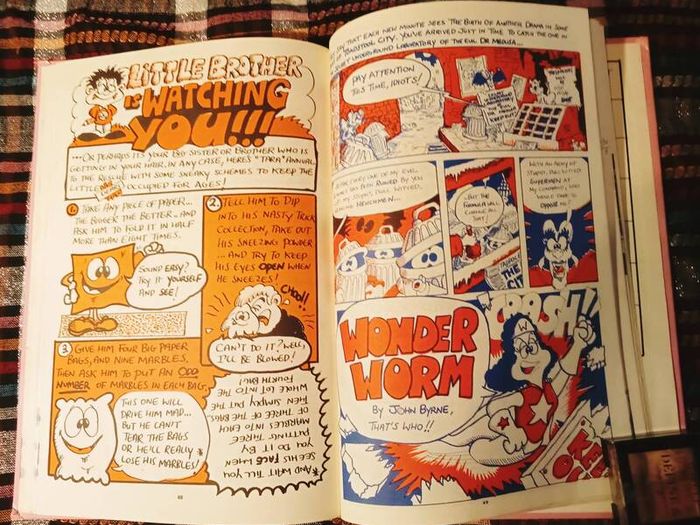 LITTLE BROTHER
IS WATCHING
YOU!!!
...OR PERHAPS IT'S YOUR BIG SISTER OR BROTHER WHO IS
GETTING IN YOUR HAIR. IN ANY CASE, HERE'S "TARA" ANNUAL
TO THE RESCUE WITH SOME SNEAKY SCHEMES TO KEEP THE
LITTLE OCCUPIED FOR AGES!
1. TAKE ANY PIECE OF PAPER...
THE BIGGER THE BETTER.. AND
ASK HIM TO FOLD IT IN HALF
MORE THAN EIGHT TIMES.
SOUND EASY?
TRY IT YOURSELF
AND SEE!
2. TELL HIM TO DIP
INTO HIS NASTY TRICK
COLLECTION, TAKE OUT
HIS SNEEZING POWDER
... AND TRY TO KEEP
HIS EYES OPEN WHEN
HE SNEEZES!
CHOO!!
CAN'T DO IT? WELL,
I'LL BE BLOWED!
3 GIVE HIM FOUR BIG PAPER
BAGS, AND NINE MARBLES,
THEN ASK HIM TO PUT AN ODD
NUMBER OF MARBLES IN EACH BAG.
THIS ONE WILL
DRIVE HIM MAD...
BUT HE CAN'T
TEAR THE BAGS
OR HE'LL REALLY *
LOSE HIS MARBLES!
*AND WAIT TILL YOU
SEE HIS FACE WHEN
YOU DO IT BY
PUTTING THREE
MARBLES INTO EACH
OF THREE OF THE BAGS
THEN SIMPLY PUT THE
WHOLE LOT INTO THE
FOURTH BAG!
48
THAT EACH NEW MINUTE SEES THE BIRTH OF ANOTHER DRAMA IN SOME
TOADSTOOL CITY. YOU'VE ARRIVED JUST IN TIME TO CATCH THE ONE IN
UNDERGROUND LABORATORY OF THE EVIL DR MEDUSA...
PAY ATTENTION
THIS TIME, IDIOTS!
EVERY ONE OF MY EVIL
HAS BEEN FOILED BY YOU
STUPID, DULL-WITTED,
HENCHMEN...
...BUT THE
FORMULA WILL
CHANGE ALL
THAT
WITH AN ARMY OF
STUPID, DULL-WITTED
SUPERMEN AT
MY COMMAND, WHO
WOULD DARE TO
OPPOSE ME?
CRASH!
WONDER
WORM
BY JOHN BYRNE,
THAT'S WHO!!
W
49